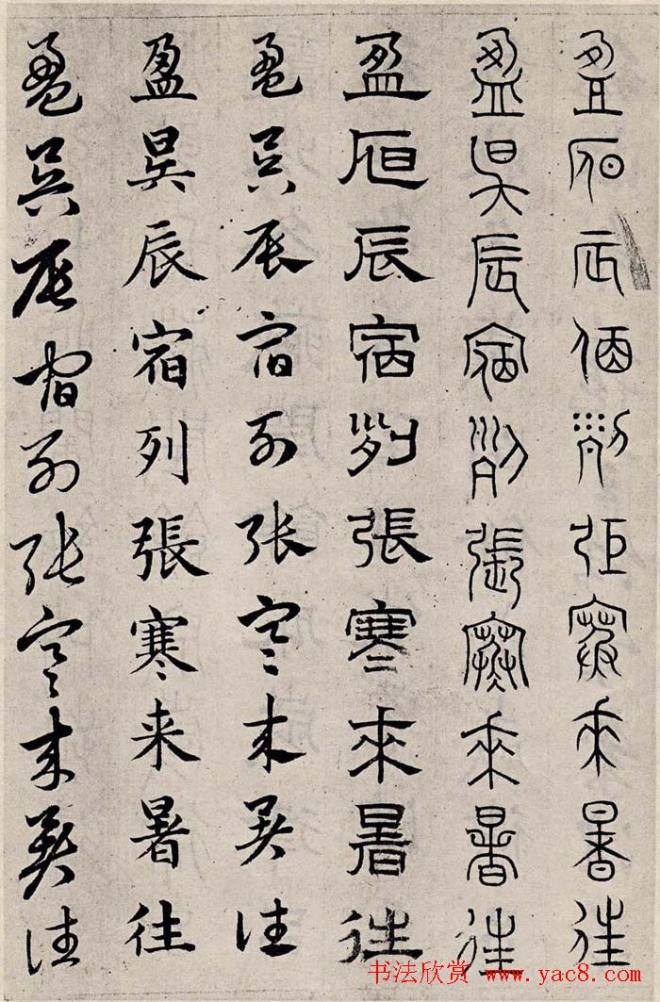 盈昃辰宿列張寒來暑往
盈昃辰宿列張寒來暑往
盈昃辰宿列張寒來暑往
盈昃辰宿列張寒来暑往
盈昃辰宿列張寒来暑往
盈昃辰宿列張寒来暑往
书法欣赏 www.yac8.com